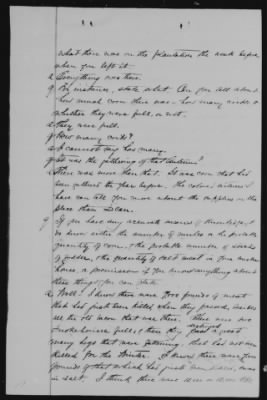 what there was on the plantation the week before
when you left it.
a Everything was there.
q For instance, state what can you tell about
how much corn there was - how many cribs &
whether they were full, or not.
a They were full.
q How many cribs?
a I cannot say how many.
q It was the gathering of that Autumn?
a There was more than that. It was corn that had
been gathered the year before. The colored witnesses
here can tell you more about the supplies on the
place than I can.
q If you have any accurate means of knowledge, &
do know either the number of mules or the probable
quantity of corn, & the probable number of stacks
of fodder, & the quantity of salt meat in your smoke
house, or provisions if you know anything about
these things you can state
a Well! I know there were pounds of meat
that had just been killed, and they
all the old meat that was there. There were
smokehouses full, & then they a great
many hogs that were fattening, that had not been
killed for the Winter. I know there were
pounds of that which had just been killed, was
in salt. I think there were